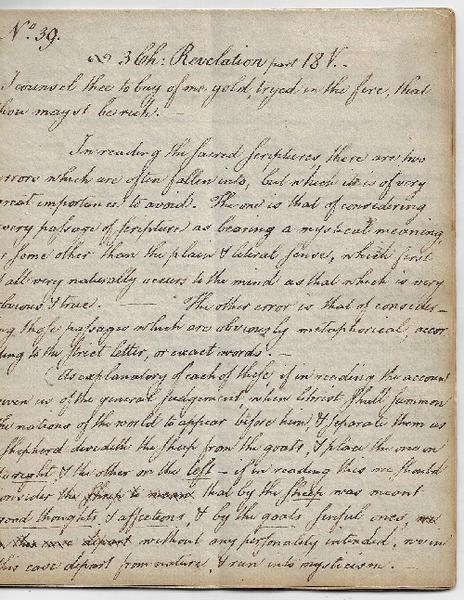 No 39.
3 Ch: Revelation part 18 V.
I counsel thee to buy of me gold, tryed in the fire, that
thou mayst be rich. —
In reading the sacred scriptures there are two
errors which are often fallen into, but which it is of very
great importance to avoid. The one is that of considering
every passage of scripture as bearing a mystical meaning,
or some other than the plain & literal sense, which first
& all very naturally occurs to the mind as that which is very
obvious & true. — The other error is that of consider-
ing those passages which are obviously metaphorical, accor
ding to the strict letter, or exact words. —
As explanatory of each of these if in reading the account
given us of the general judgement when Christ shall summon
the nations of the world to appear before him & separate them as
shepherd devideth the sheep from the goats, & place the one on
right & the other on the left — if in reading this we should
consider the sheep to mean that by the sheep was meant
good thoughts, & affections, & by the goats sinful ones, we
in this case depart without any personality intended, we in
this case depart from nature, & run into mysticism. —